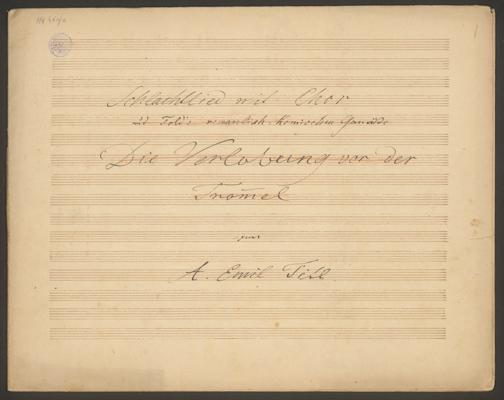 Schlachtlied mit Chor
zu Told's romantisch-komischen Gemälde
Die Verlobung vor der
Trom̄el
von
A. Emil Titl